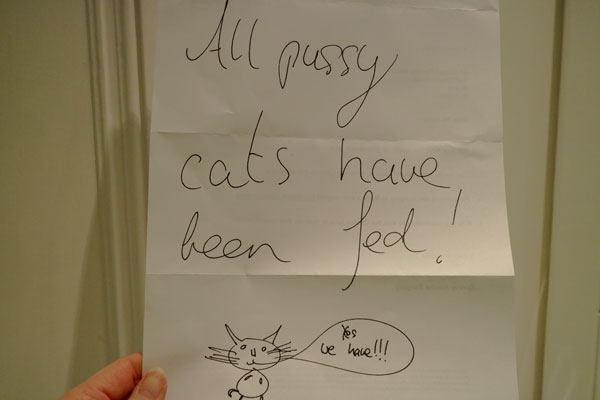 All pussy
cats have
been fed!
Yes
we have!!!